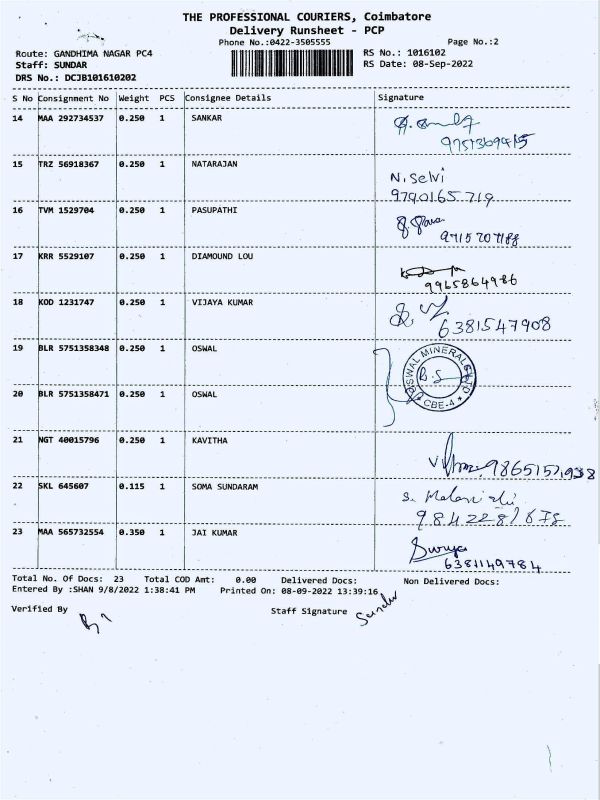 THE PROFESSIONAL COURIERS, Coimbatore
Delivery Runsheet - PCP
Phone No.:0422-3505555 Page No.:2
Route: GANDHIMA NAGAR PC4 RS No.: 1016102
Staff: SUNDAR RS Date: 08-Sep-2022
DRS No.: DCJB101610202
S No Consignment No Weight PCS Consignee Details Signature
14 MAA 292734537 0.250 1 SANKAR
9751369415
15 TRZ 56918367 0.250 1 NATARAJAN N. Selvi
9790165719
16 TVM 1529704 0.250 1 PASUPATHI
9715207188
17 KRR 5529107 0.250 1 DIAMOUND LOU
9965864986
18 KOD 1231747 0.250 1 VIJAYA KUMAR
6381547908
19 BLR 5751358348 0.250 1 OSWAL
OSWAL MINERALS
B.S
CBE-4
20 BLR 5751358471 0.250 1 OSWAL
21 NGT 40015796 0.250 1 KAVITHA
9865151938
22 SKL 645607 0.115 1 SOMA SUNDARAM
23 MAA 565732554 0.350 1 JAI KUMAR Surya
6381149784
Total No. Of Docs: 23 Total COD Amt: 0.00 Delivered Docs: Non Delivered Docs:
Entered By :SHAN 9/8/2022 1:38:41 PM Printed On: 08-09-2022 13:39:16
Verified By Staff Signature Sundar